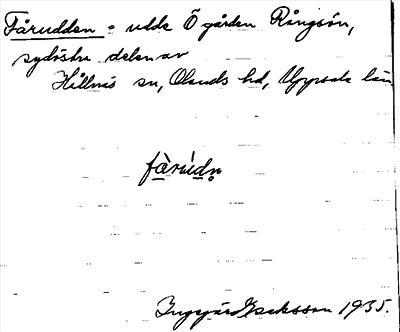 Fårudden = udde Ö gården Rångsön,
sydöstra delen av
Hållnäs sn, Olands hd, Uppsala län
fårudn
Ingegärd Isaksson 1935.